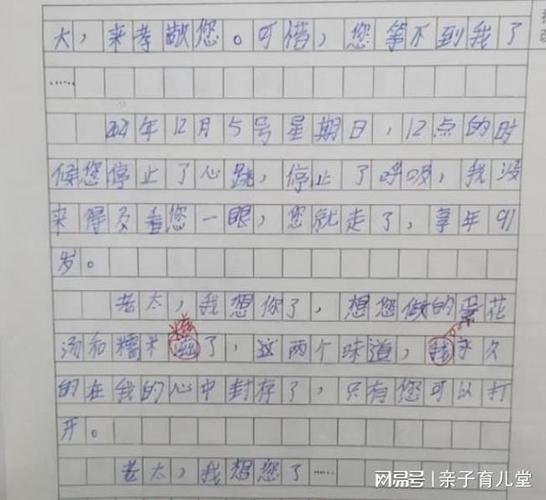 大，来孝敬您。可惜，您等不到我了
……
2021年12月5号星期日，12点的时
候您停止了心跳，停止了呼吸，我没
来得及看您一眼，您就走了，享年91
岁。
老太，我想你了，想您做的蛋花
汤和糯米糍了，这两个味道，我永久
的在我的心中封存了，只有您可以打
开。
老太，我想您了……
网易号 / 亲子育儿堂